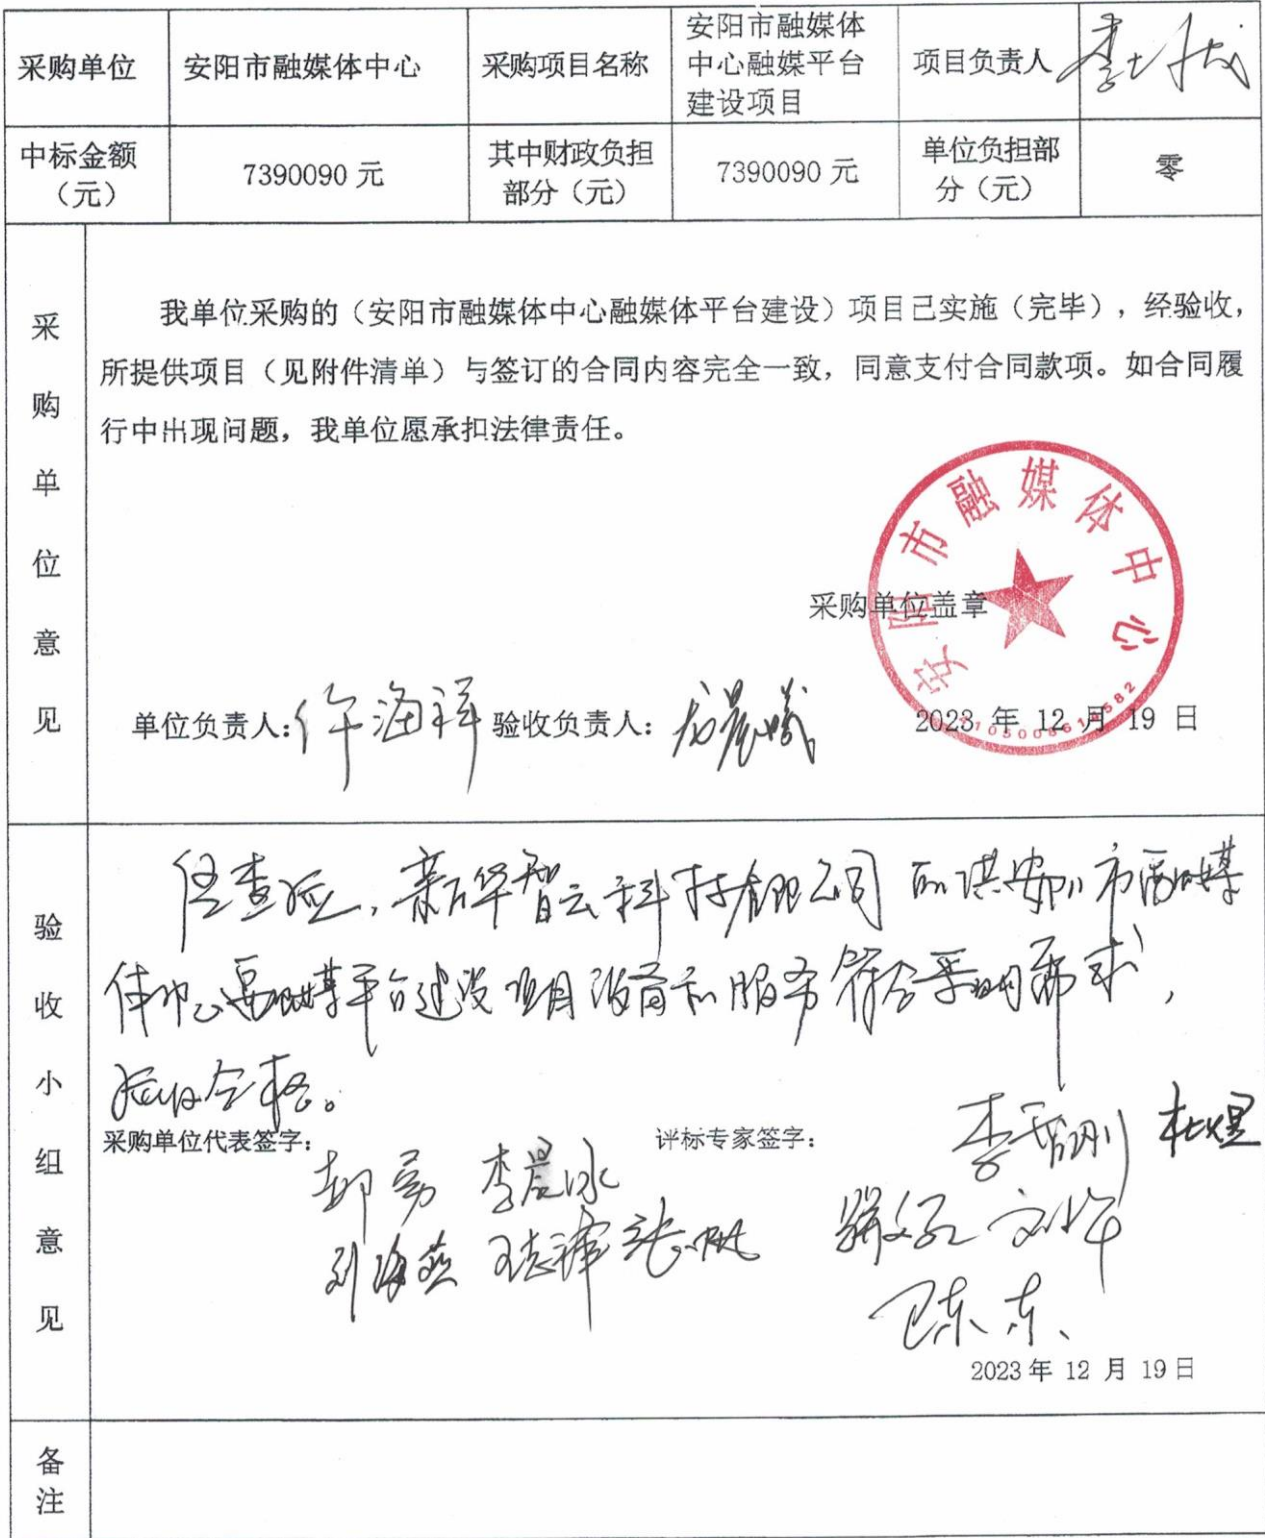 采购单位 安阳市融媒体中心 采购项目名称 安阳市融媒体中心融媒平台建设项目 项目负责人
中标金额（元） 7390090 元 其中财政负担部分（元） 7390090 元 单位负担部分（元） 零
采购单位意见
我单位采购的（安阳市融媒体中心融媒体平台建设）项目已实施（完毕），经验收，
所提供项目（见附件清单）与签订的合同内容完全一致，同意支付合同款项。如合同履
行中出现问题，我单位愿承担法律责任。
安阳市融媒体中心
采购单位盖章
单位负责人： 验收负责人： 2023 年 12 月 19 日
验收小组意见
经查验，新华智云科技有限公司 市融媒
体中心融媒平台建设项目设备和服务符合采购需求，
验收合格。
采购单位代表签字： 评标专家签字：
李晨冰
刘海燕
陈东
2023 年 12 月 19 日
备注